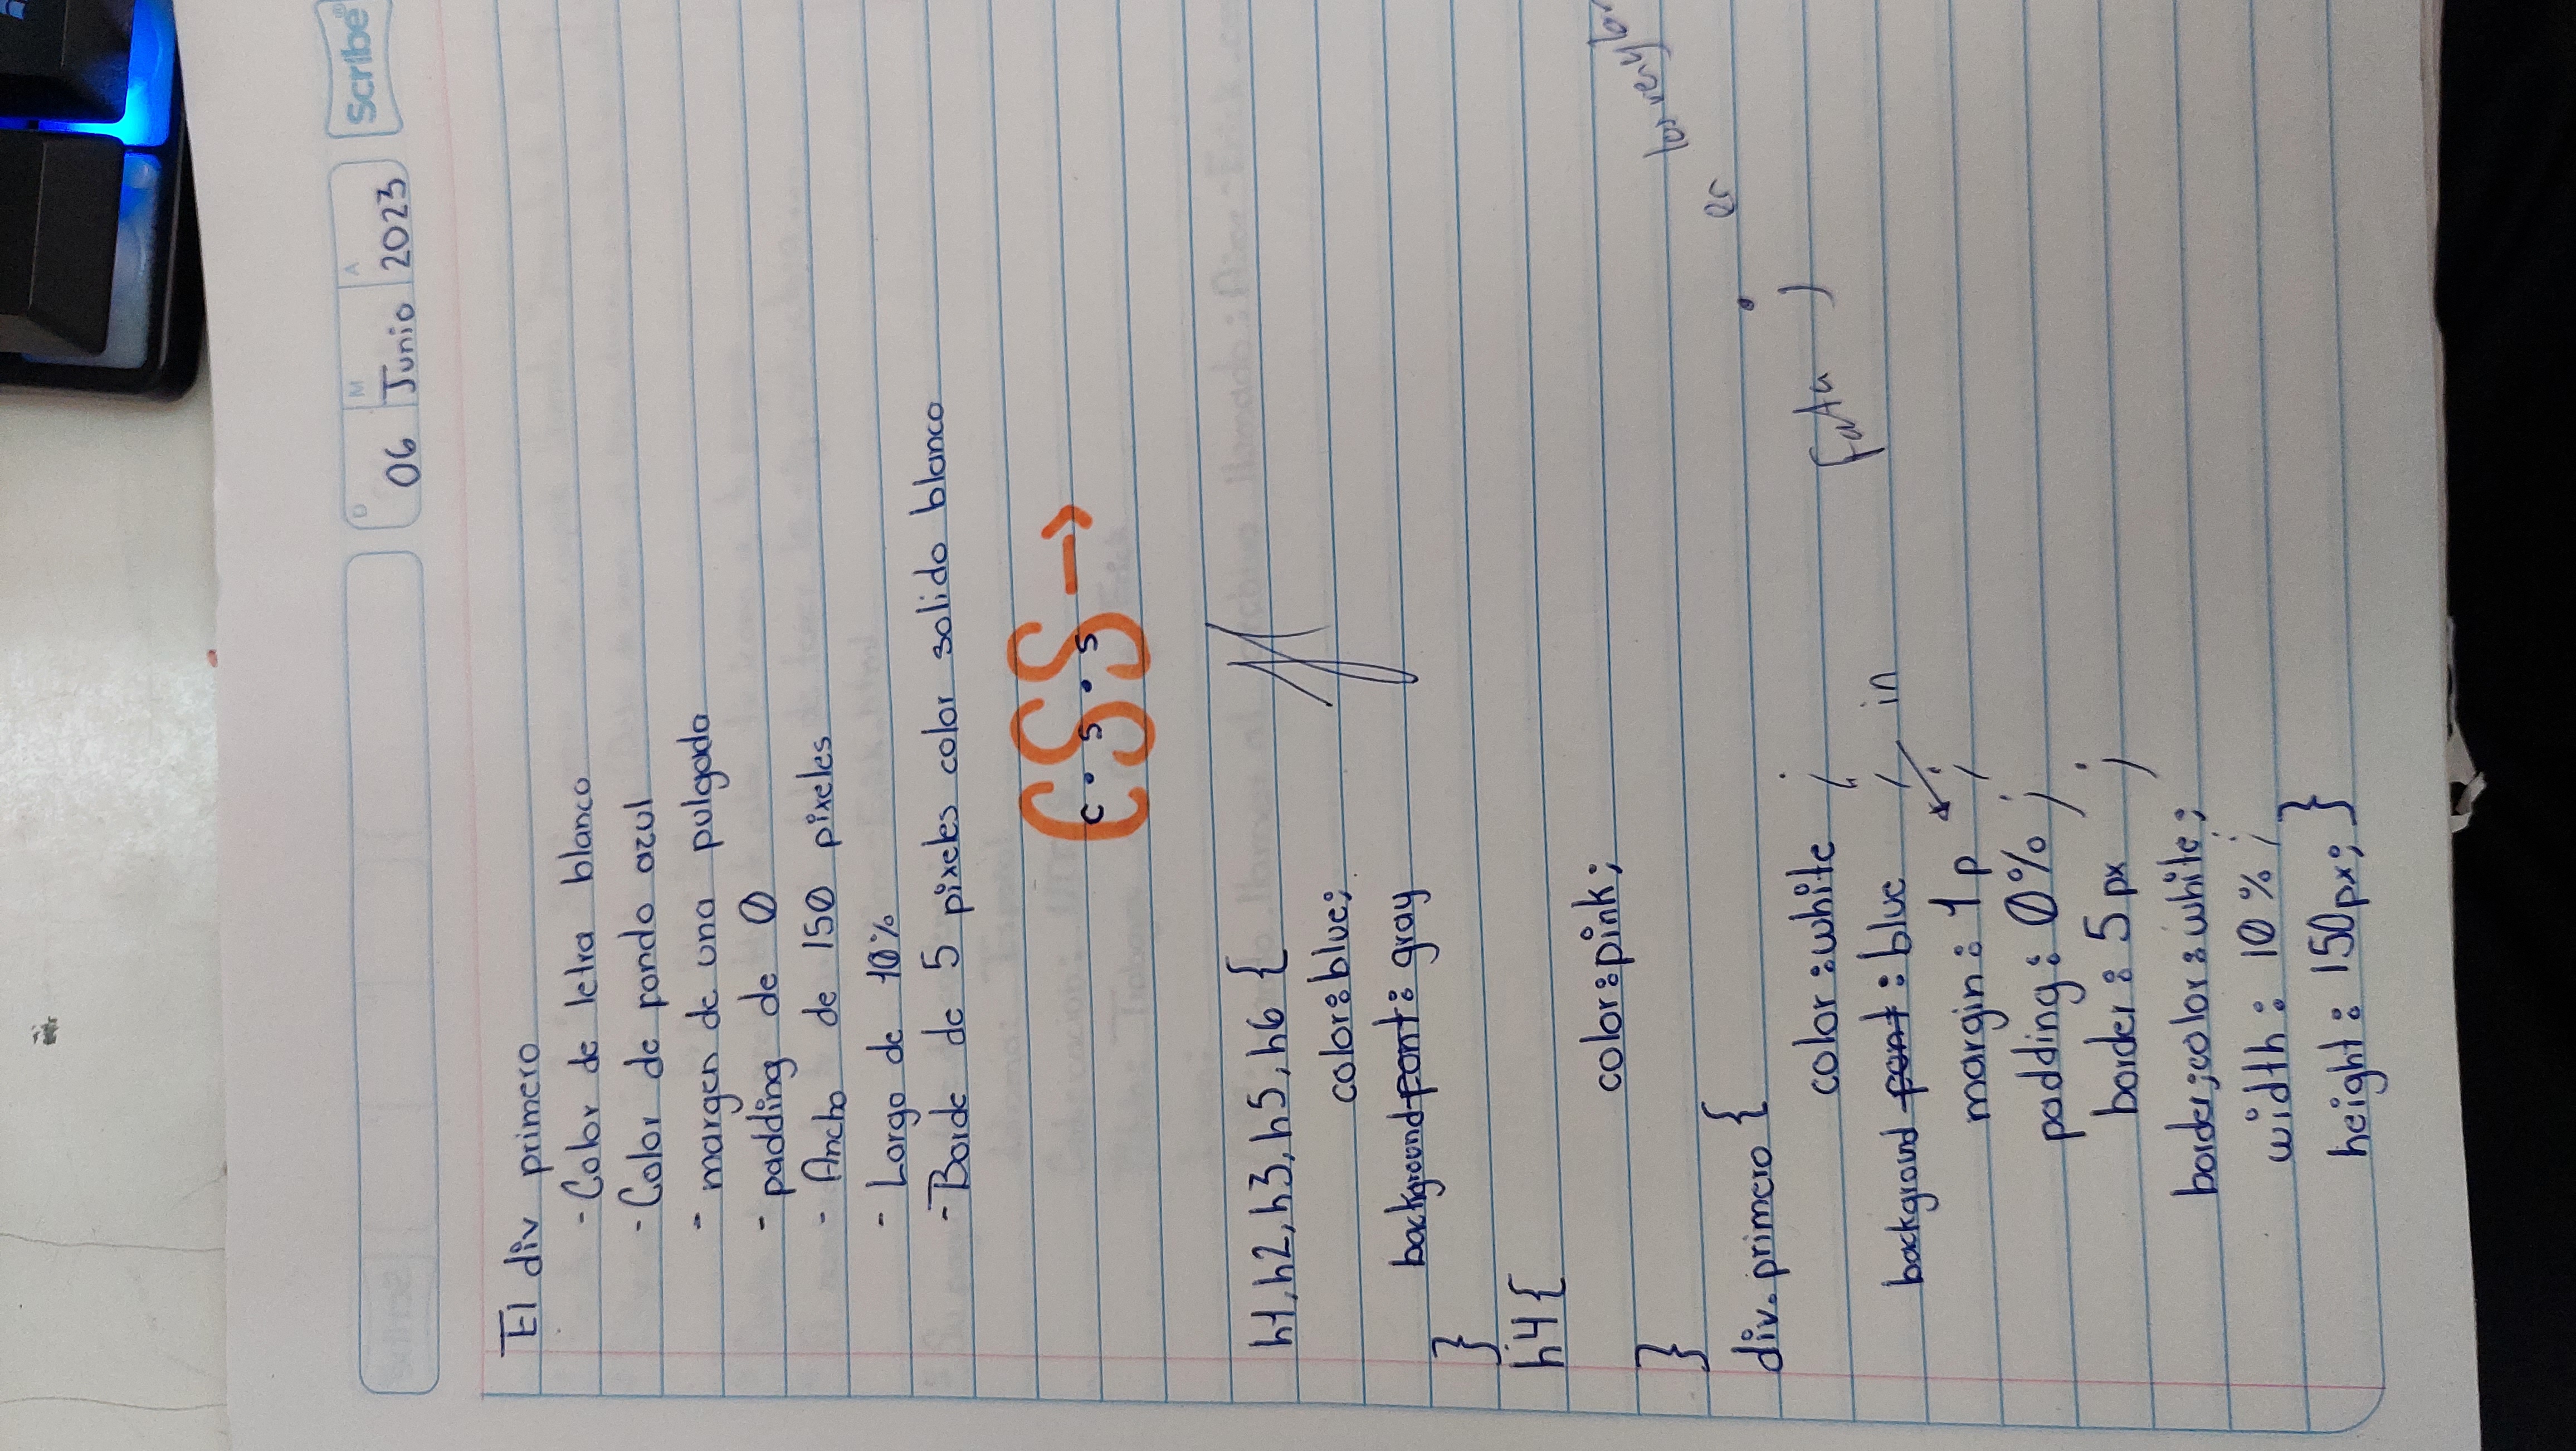 D M A
06 Junio 2023
Scribe®
El div primero
- Color de letra blanco
- Color de fondo azul
- margen de una pulgada
- padding de 0
- Ancho de 150 pixeles
- Largo de 10%
- Borde de 5 pixeles color solido blanco
CSS →
c . s . s
h1, h2, h3, h5, h6 {
color: blue;
background-font: gray
}
h4 {
color: pink;
}
div. primero {
color: white ;
background font : blue ;
in
margin: 1 p ;
padding: 0% ;
border: 5 px ;
border;color: white;
width: 10% ;
height: 150px; }
Falta ; en los